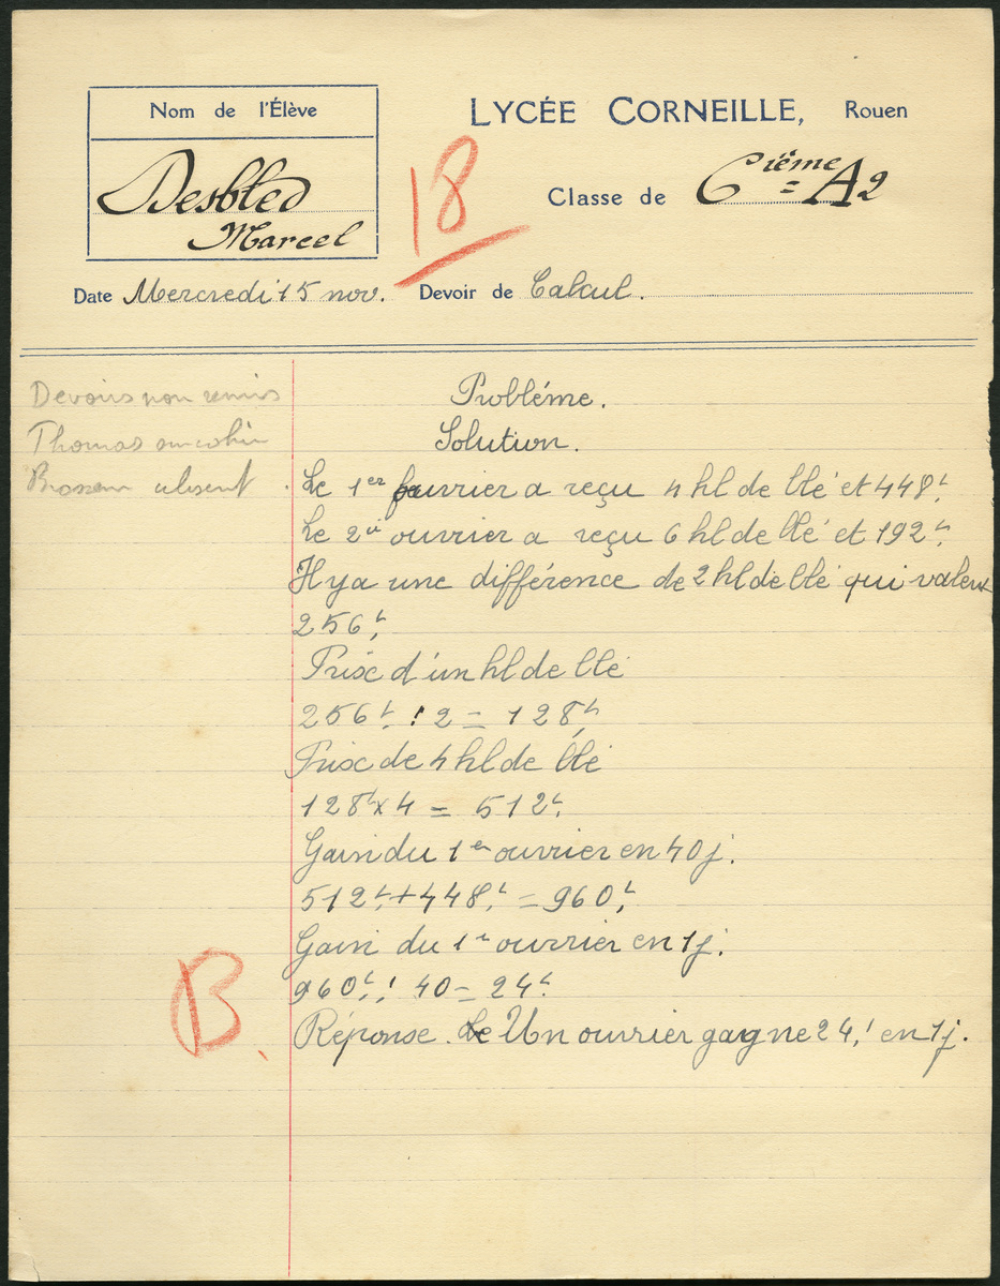 Nom de l'Élève
LYCÉE CORNEILLE, Rouen
Desbled
Marcel
18
Classe de 6ième A2
Date Mercredi 15 nov. Devoir de Calcul.
Devoirs non remis
Probléme.
Thomas
Solution.
absent
Le 1er ouvrier a reçu 4 hl de blé et 448f.
Le 2e ouvrier a reçu 6 hl de blé et 192f.
Il y a une différence de 2 hl de blé qui valent
256f.
Prix d'un hl de blé
256f. : 2 = 128f
Prix de 4 hl de blé
128f x 4 = 512f.
Gain du 1er ouvrier en 40 j.
512f. + 448f. = 960f.
Gain du 1er ouvrier en 1 j.
960f. : 40 = 24f.
B.
Réponse. Un ouvrier gagne 24f. en 1 j.